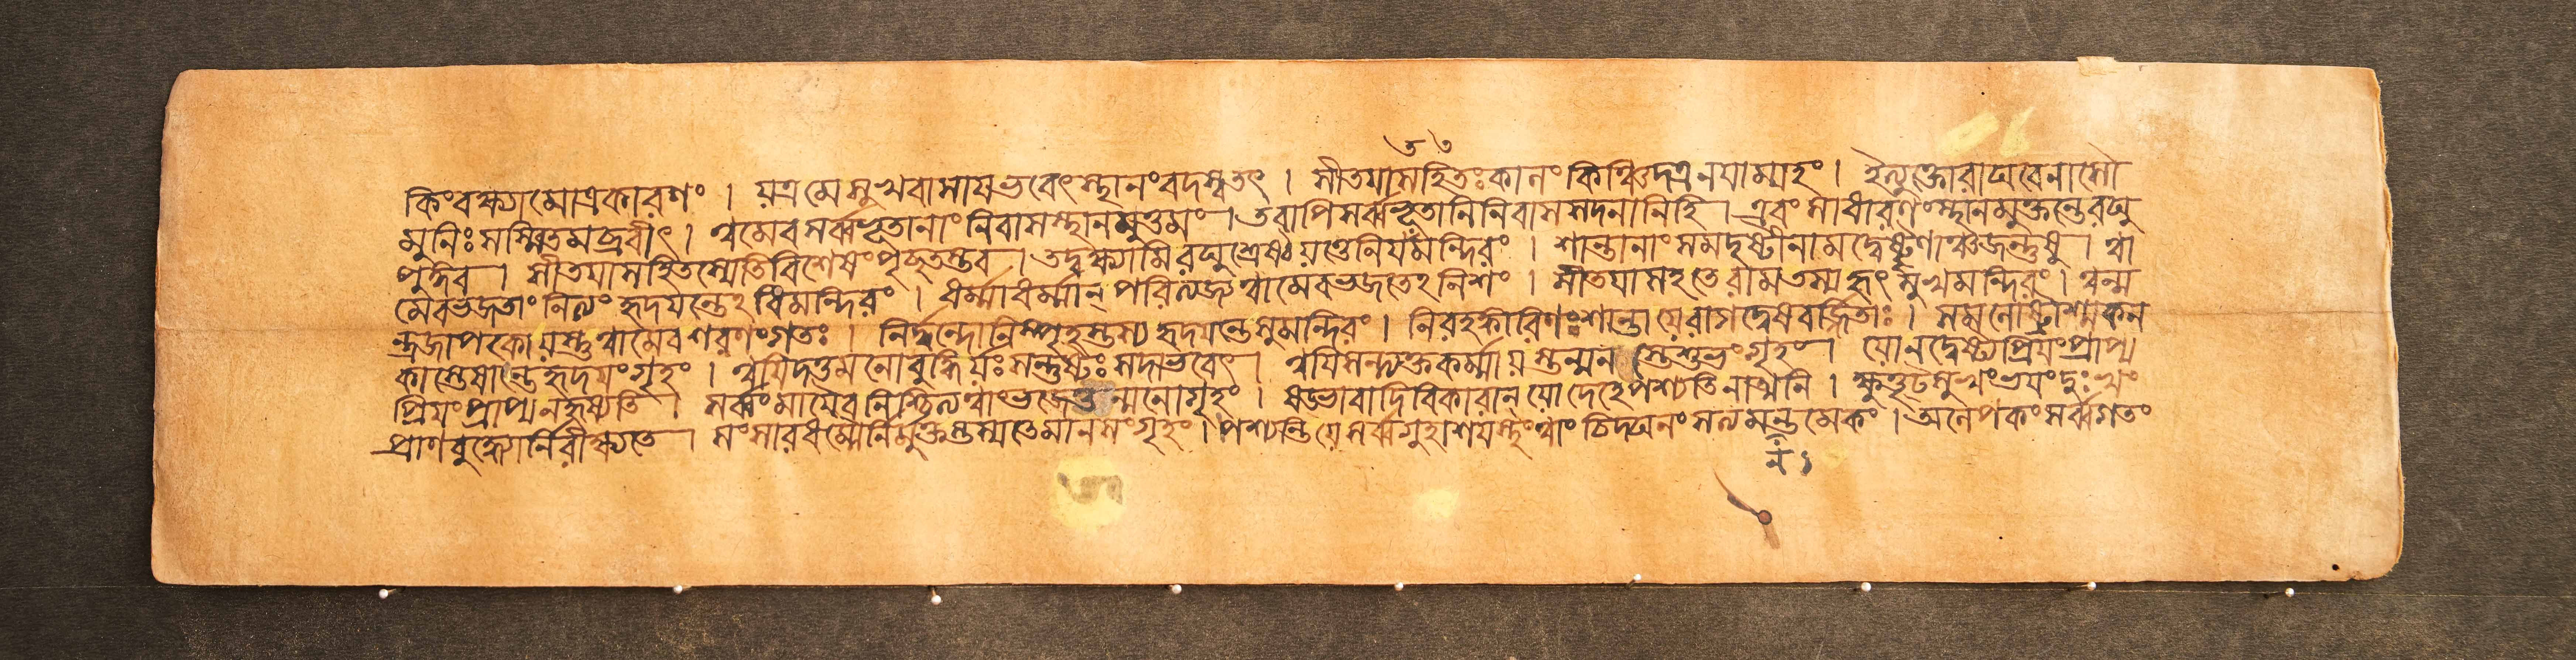 ৩৩
কিংবক্ষ্যামোত্রকারণং । যত্রমেসুখবাসাযভবেৎস্থানংবদস্বতৎ । সীতযাসহিতঃকালংকিঞ্চিদত্রনযাম্যহং । ইত্যুক্তোরাঘবেনাসৌ
মুনিঃসস্মিতমব্রবীৎ । ত্বমেবসর্ব্বভূতানাংনিবাসস্থানমুত্তমং । তবাপিসর্ব্বভূতানিনিবাসসদনানিহি । এবংসাধারণংস্থানমুক্তন্তেরঘু
পুঙ্গব । সীতযাসহিতস্যেতিবিশেষংপৃচ্ছতস্তব । তদ্বক্ষ্যামিরঘুশ্রেষ্ঠযত্তেনিযতমন্দিরং । শান্তানাংসমদৃষ্টীনামদ্বেষ্টৄণাঞ্চজন্তুষু । ত্বা
মেবভজতাংনিত্যংহৃদযন্তেঽধিমন্দিরং । ধর্ম্মাধর্ম্মান্পরিত্যজ্যত্বামেবভজতেঽনিশং । সীতযাসহতেরামতস্যহৃৎসুখমন্দিরং । ত্বন্ম
ন্ত্রজাপকোযস্তুত্বামেবশরণংগতঃ । নির্দ্বন্দোনিস্পৃহস্তস্যহৃদযন্তেসুমন্দিরং । নিরহঙ্কারিণঃশান্তাযেরাগদ্বেষবর্জ্জিতাঃ । সমলোষ্টাশ্মকন
কাস্তেষান্তেহৃদযংগৃহং । ত্বযিদত্তমনোবুদ্ধির্যঃসন্তুষ্টঃসদাভবেৎ । ত্বযিসন্ত্যক্তকর্ম্মাযস্তন্মনস্তেশুভংগৃহং । যোনদ্বেষ্ট্যপ্রিযংপ্রাপ্য
প্রিযংপ্রাপ্যনহৃষ্যতি । সর্ব্বংমাযেবনিশ্চিত্যত্বাংভজেত্তন্মনোগৃহং । ষড্ভাবাদিবিকারান্যোদেহেপশ্যতিনাত্মনি । ক্ষুত্তৃট্সুখংভযংদুঃখং
প্রাণবুদ্ধ্যোর্নিরীক্ষ্যতে । সংসারধর্ম্মৈর্নির্মুক্তস্তস্যতেমানসংগৃহং । পশ্যন্তিযেসর্ব্বগুহাশযস্থংত্বাংচিদ্ঘনংসত্যমন্তমেকং । অলেপকংসর্ব্বগতং
ন ১